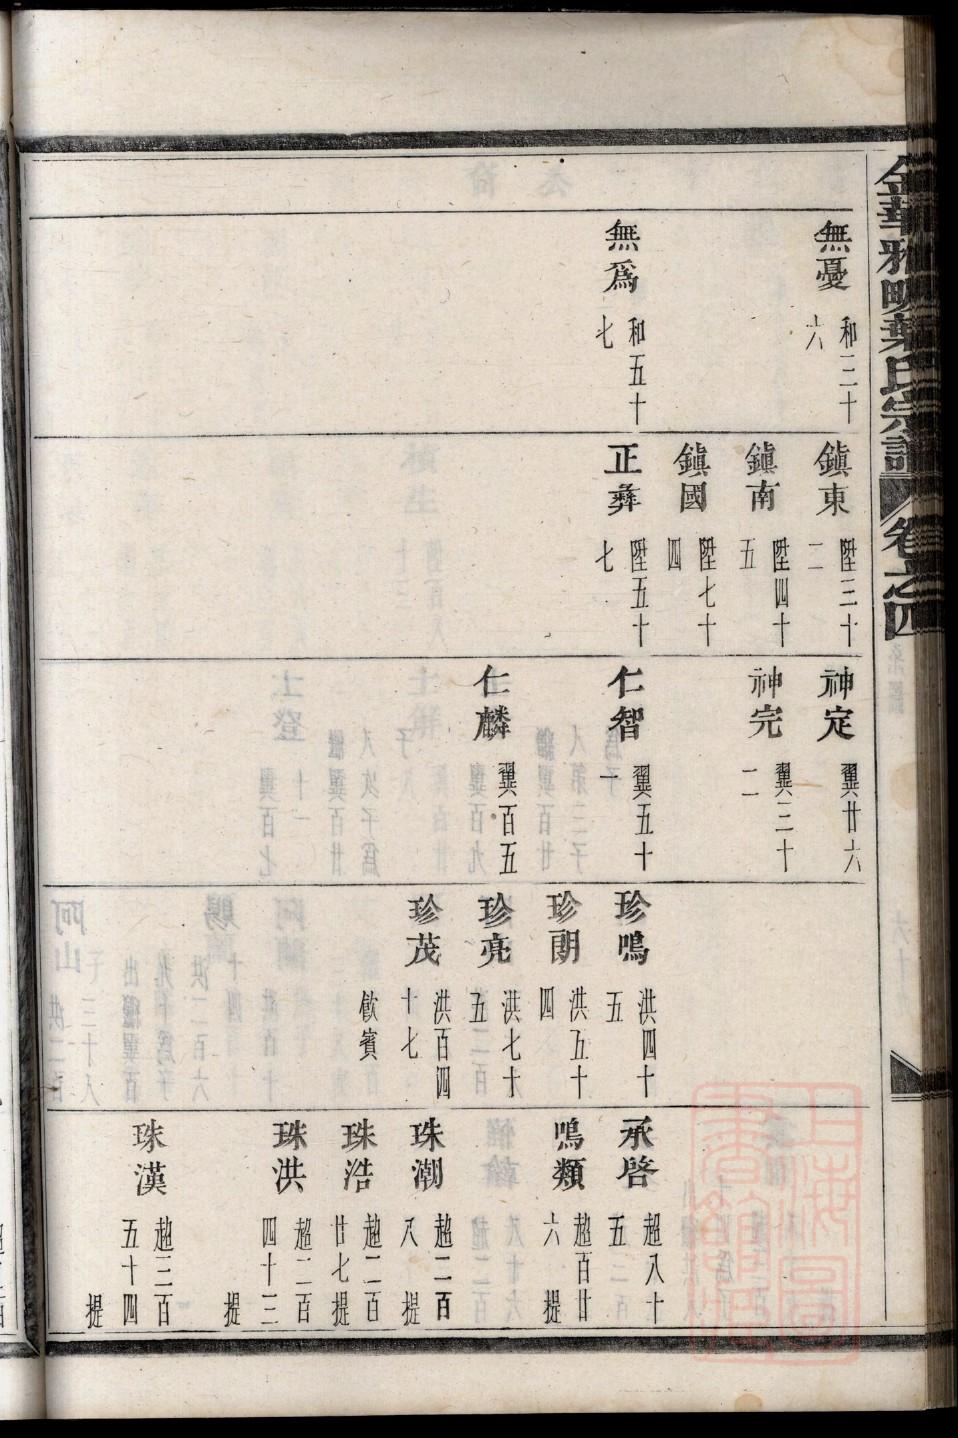 金華雅畈葉氏宗譜 卷之四
無憂 和三十六
無爲 和五十七
鎮東 陞三十二
鎮南 陞四十五
鎮國 陞七十四
正彝 陞五十七
神定 翼廿六
神完 翼三十二
仁智 翼五十一
仁麟 翼百五
珍鳴 洪四十五
珍朗 洪五十四
珍亮 洪七十五
珍茂 洪百四十七 飲賓
承啓 超八十五
鳴類 超百廿六 提
珠潮 超二百八 提
珠浩 超二百廿七 提
珠洪 超二百四十三 提
珠漢 超三百五十四 提
上海圖書館藏